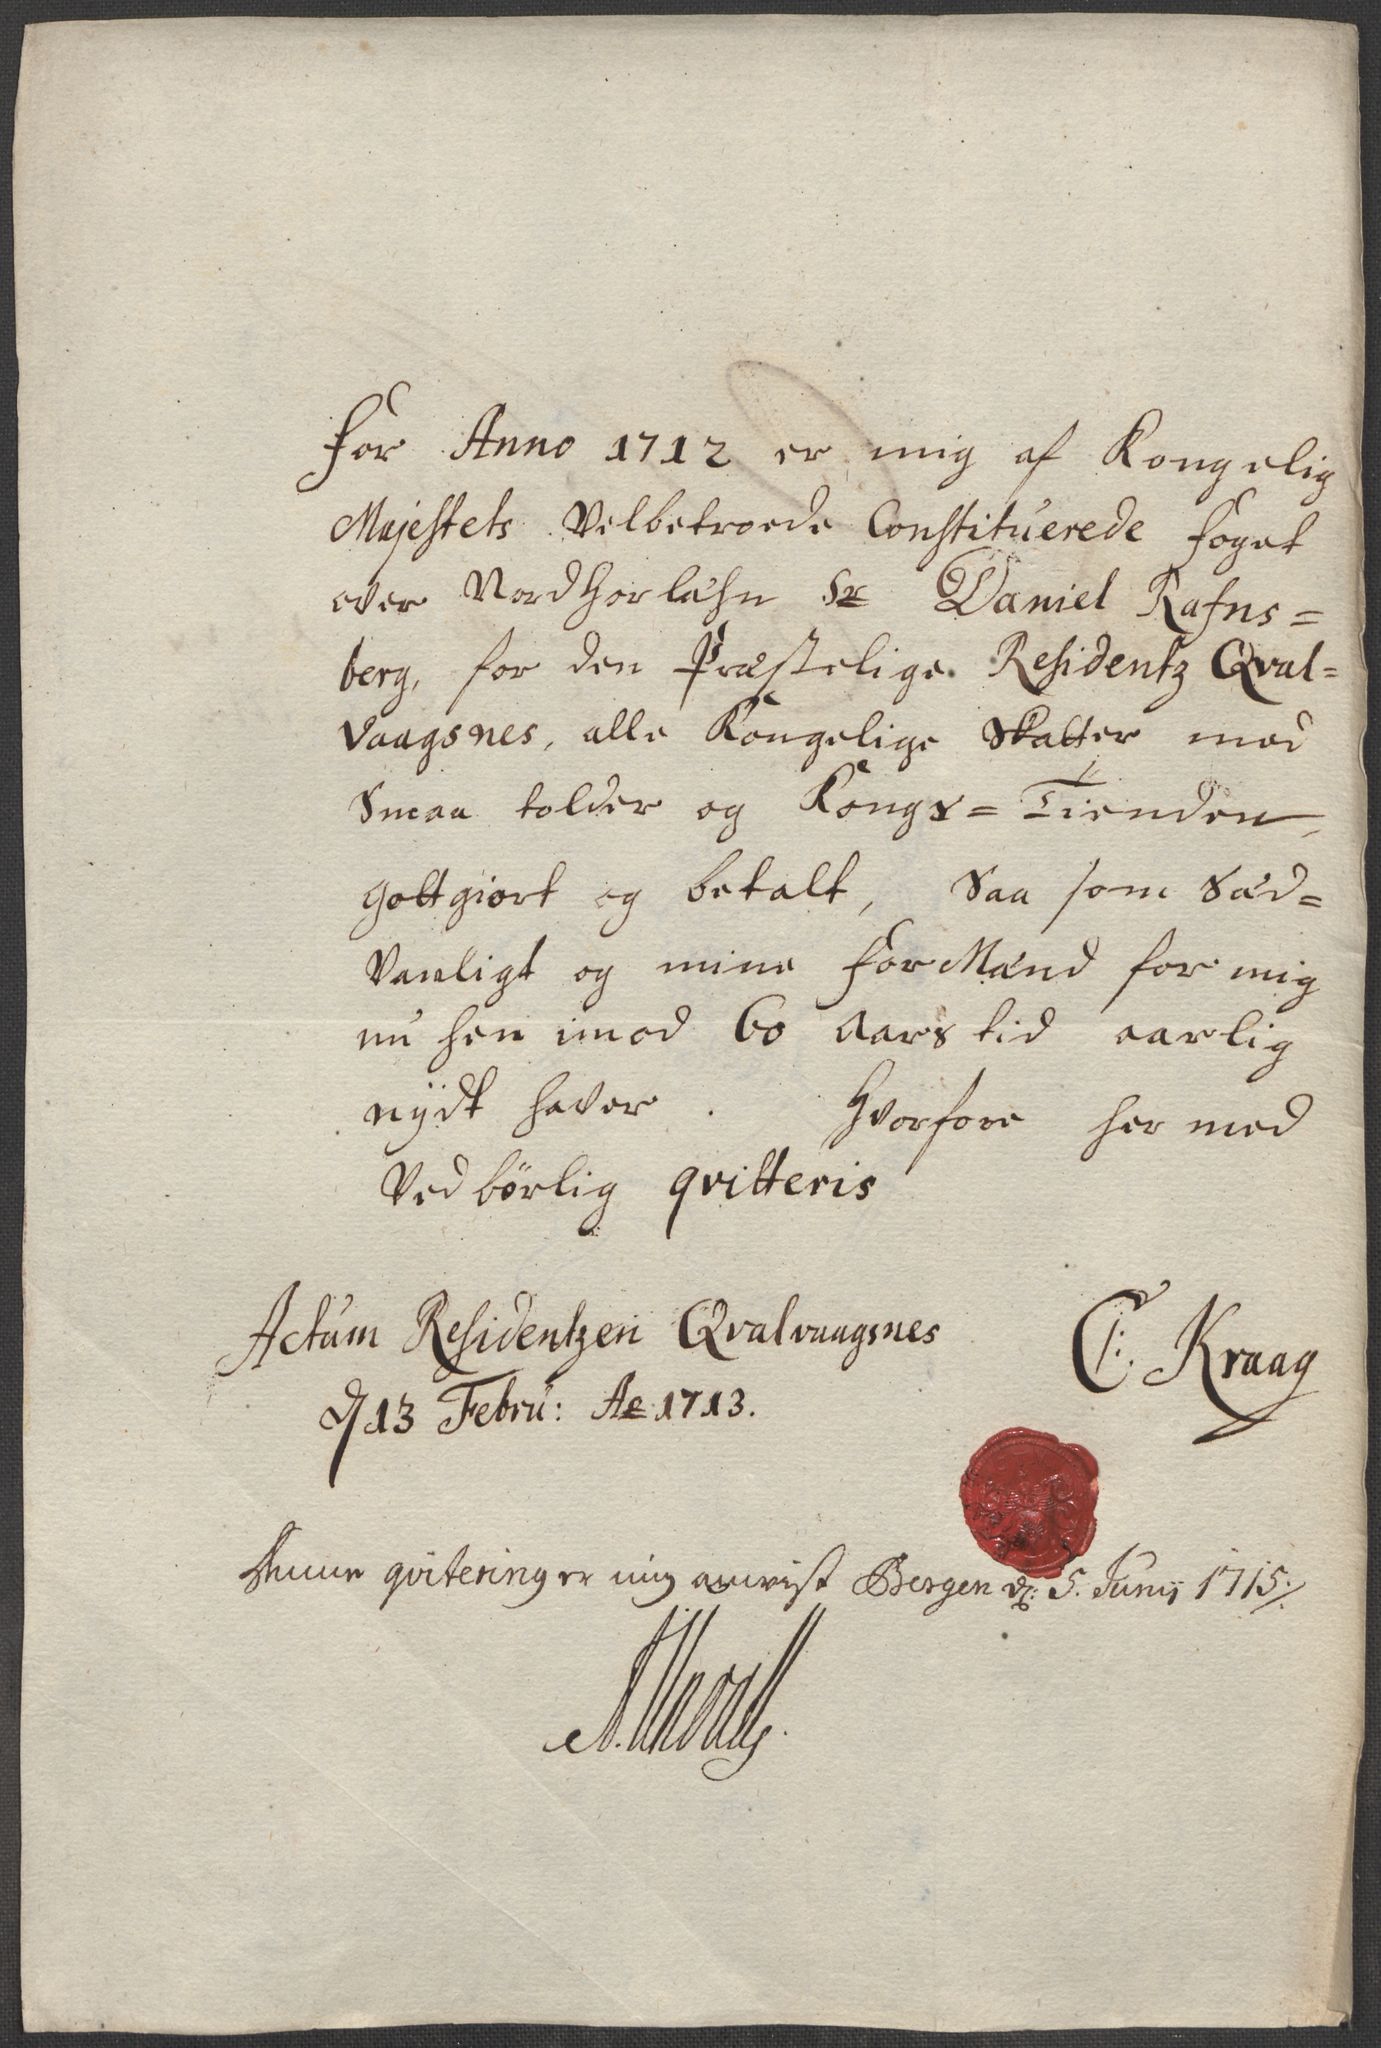 For Anno 1712 er mig af Kongelig
Majestets Velbetroede Constituerede foget
over Nordhorlehn Sr Daniel Rafns=
berg, for den Præstelige Residentz Qval=
vaagsnes, alle Kongelige Skatter med
Smaa tolder og Kongs=Tienden,
gottgiort og betalt, Saa som Sæd=
vanligt og mine forMænd for mig
nu hen imod 60 Aars tid aarlig
nÿdt haver. Hvorfore her med
Vedbørlig qvitteris
Actum Residentzen Qvalvaagsnes
d 13 Febru: Ao 1713.
C: Kraag
Denne qvitering er mig anvist Bergen d: 5. Junij 1715